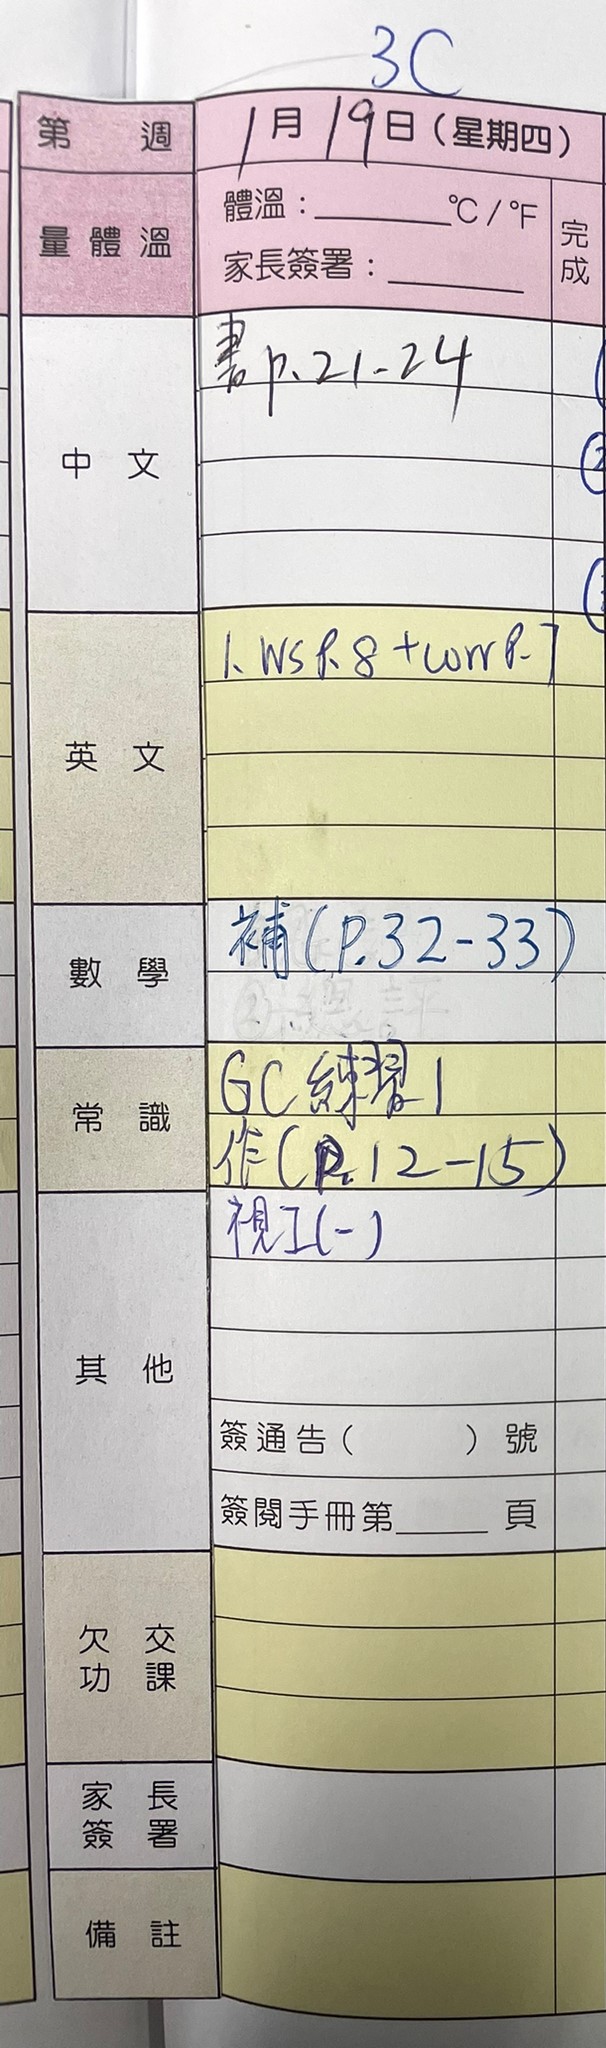 3C
第 週 1月19日(星期四)
量體溫 體溫：______°C/°F 完成
家長簽署：______
書p.21-24
中文
1. WS P.8 + corr P.7
英文
補(P.32-33)
數學
總評
GC練習1
常識
作(P.12-15)
視I(一)
其他
簽通告( )號
簽閱手冊第____頁
欠交功課
家長簽署
備註